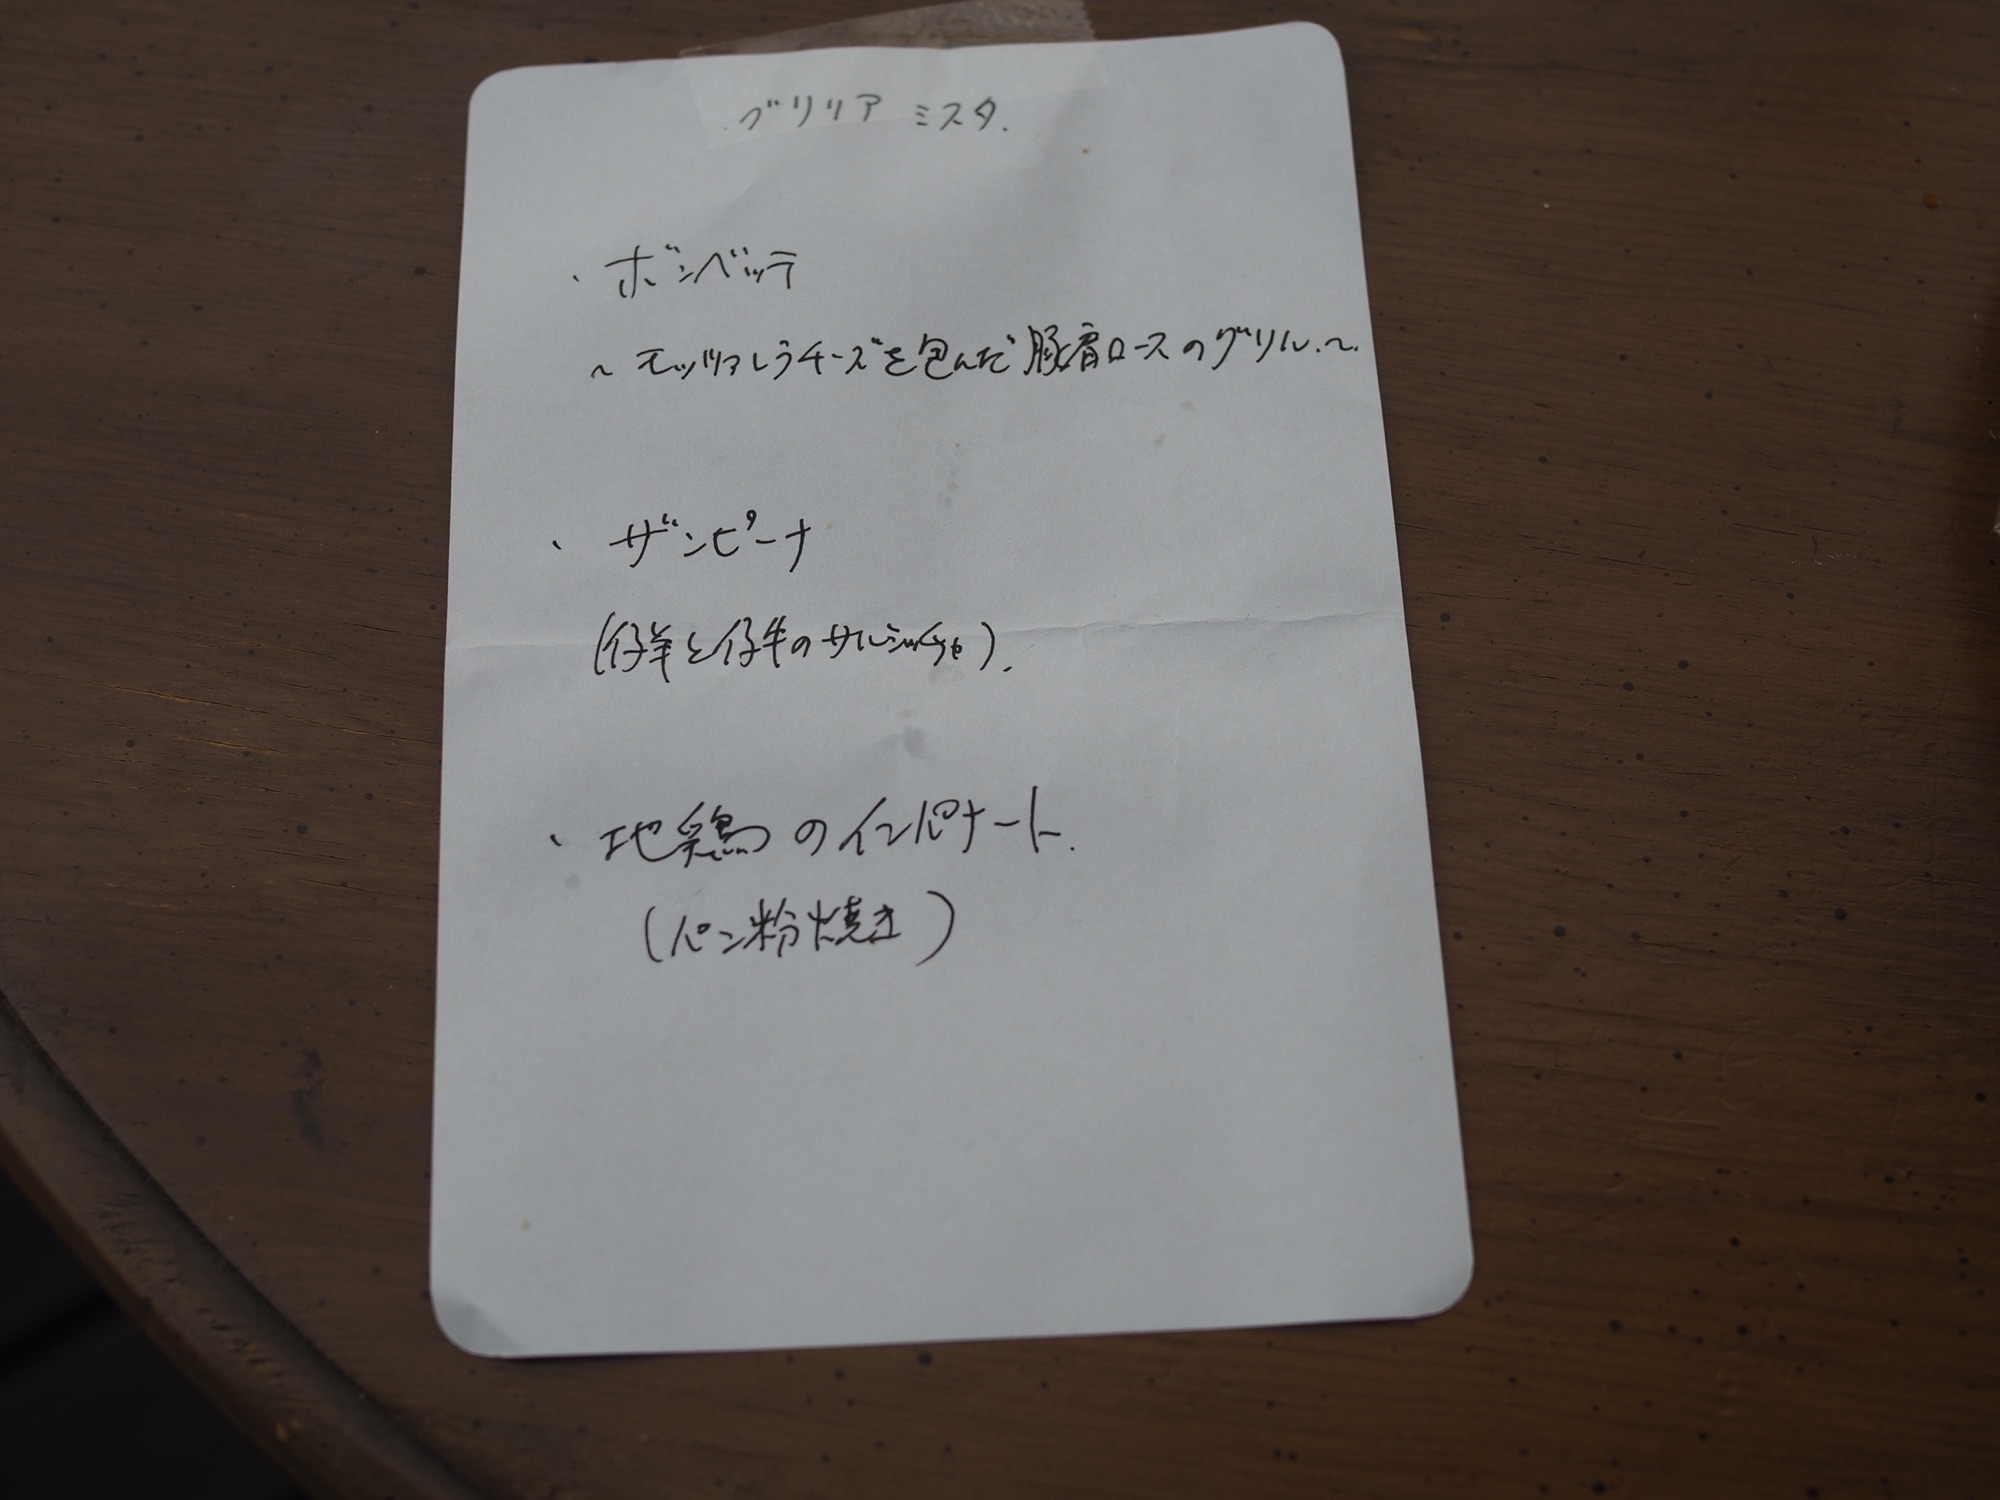 グリリア ミスタ.
・ボンベッテ
～モッツァレラチーズを包んだ豚肩ロースのグリル.～.
・ザンピーナ
(仔羊と仔牛のサルシッチャ).
・地鶏のインパナート.
(パン粉焼き)